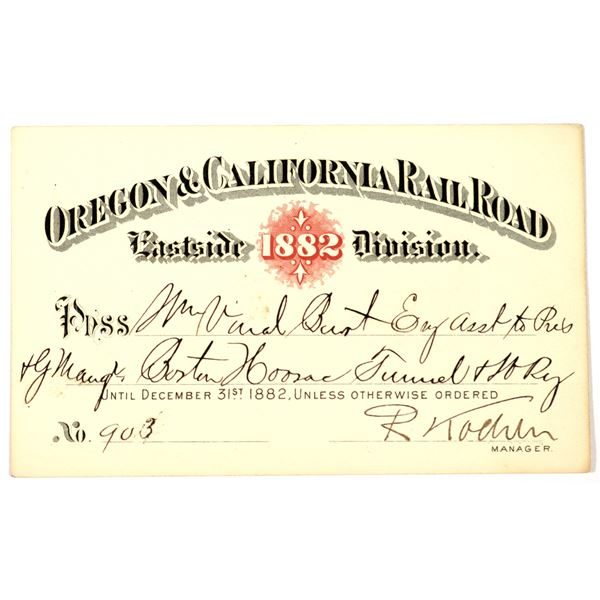 OREGON & CALIFORNIA RAIL ROAD
Eastside 1882 Division.
Pass Wm Vand Burt Eng Asst to Pres
& G Mang'r Boston Hoosac Tunnel & W Ry
UNTIL DECEMBER 31ST 1882, UNLESS OTHERWISE ORDERED
No. 903 R Koehler
MANAGER.